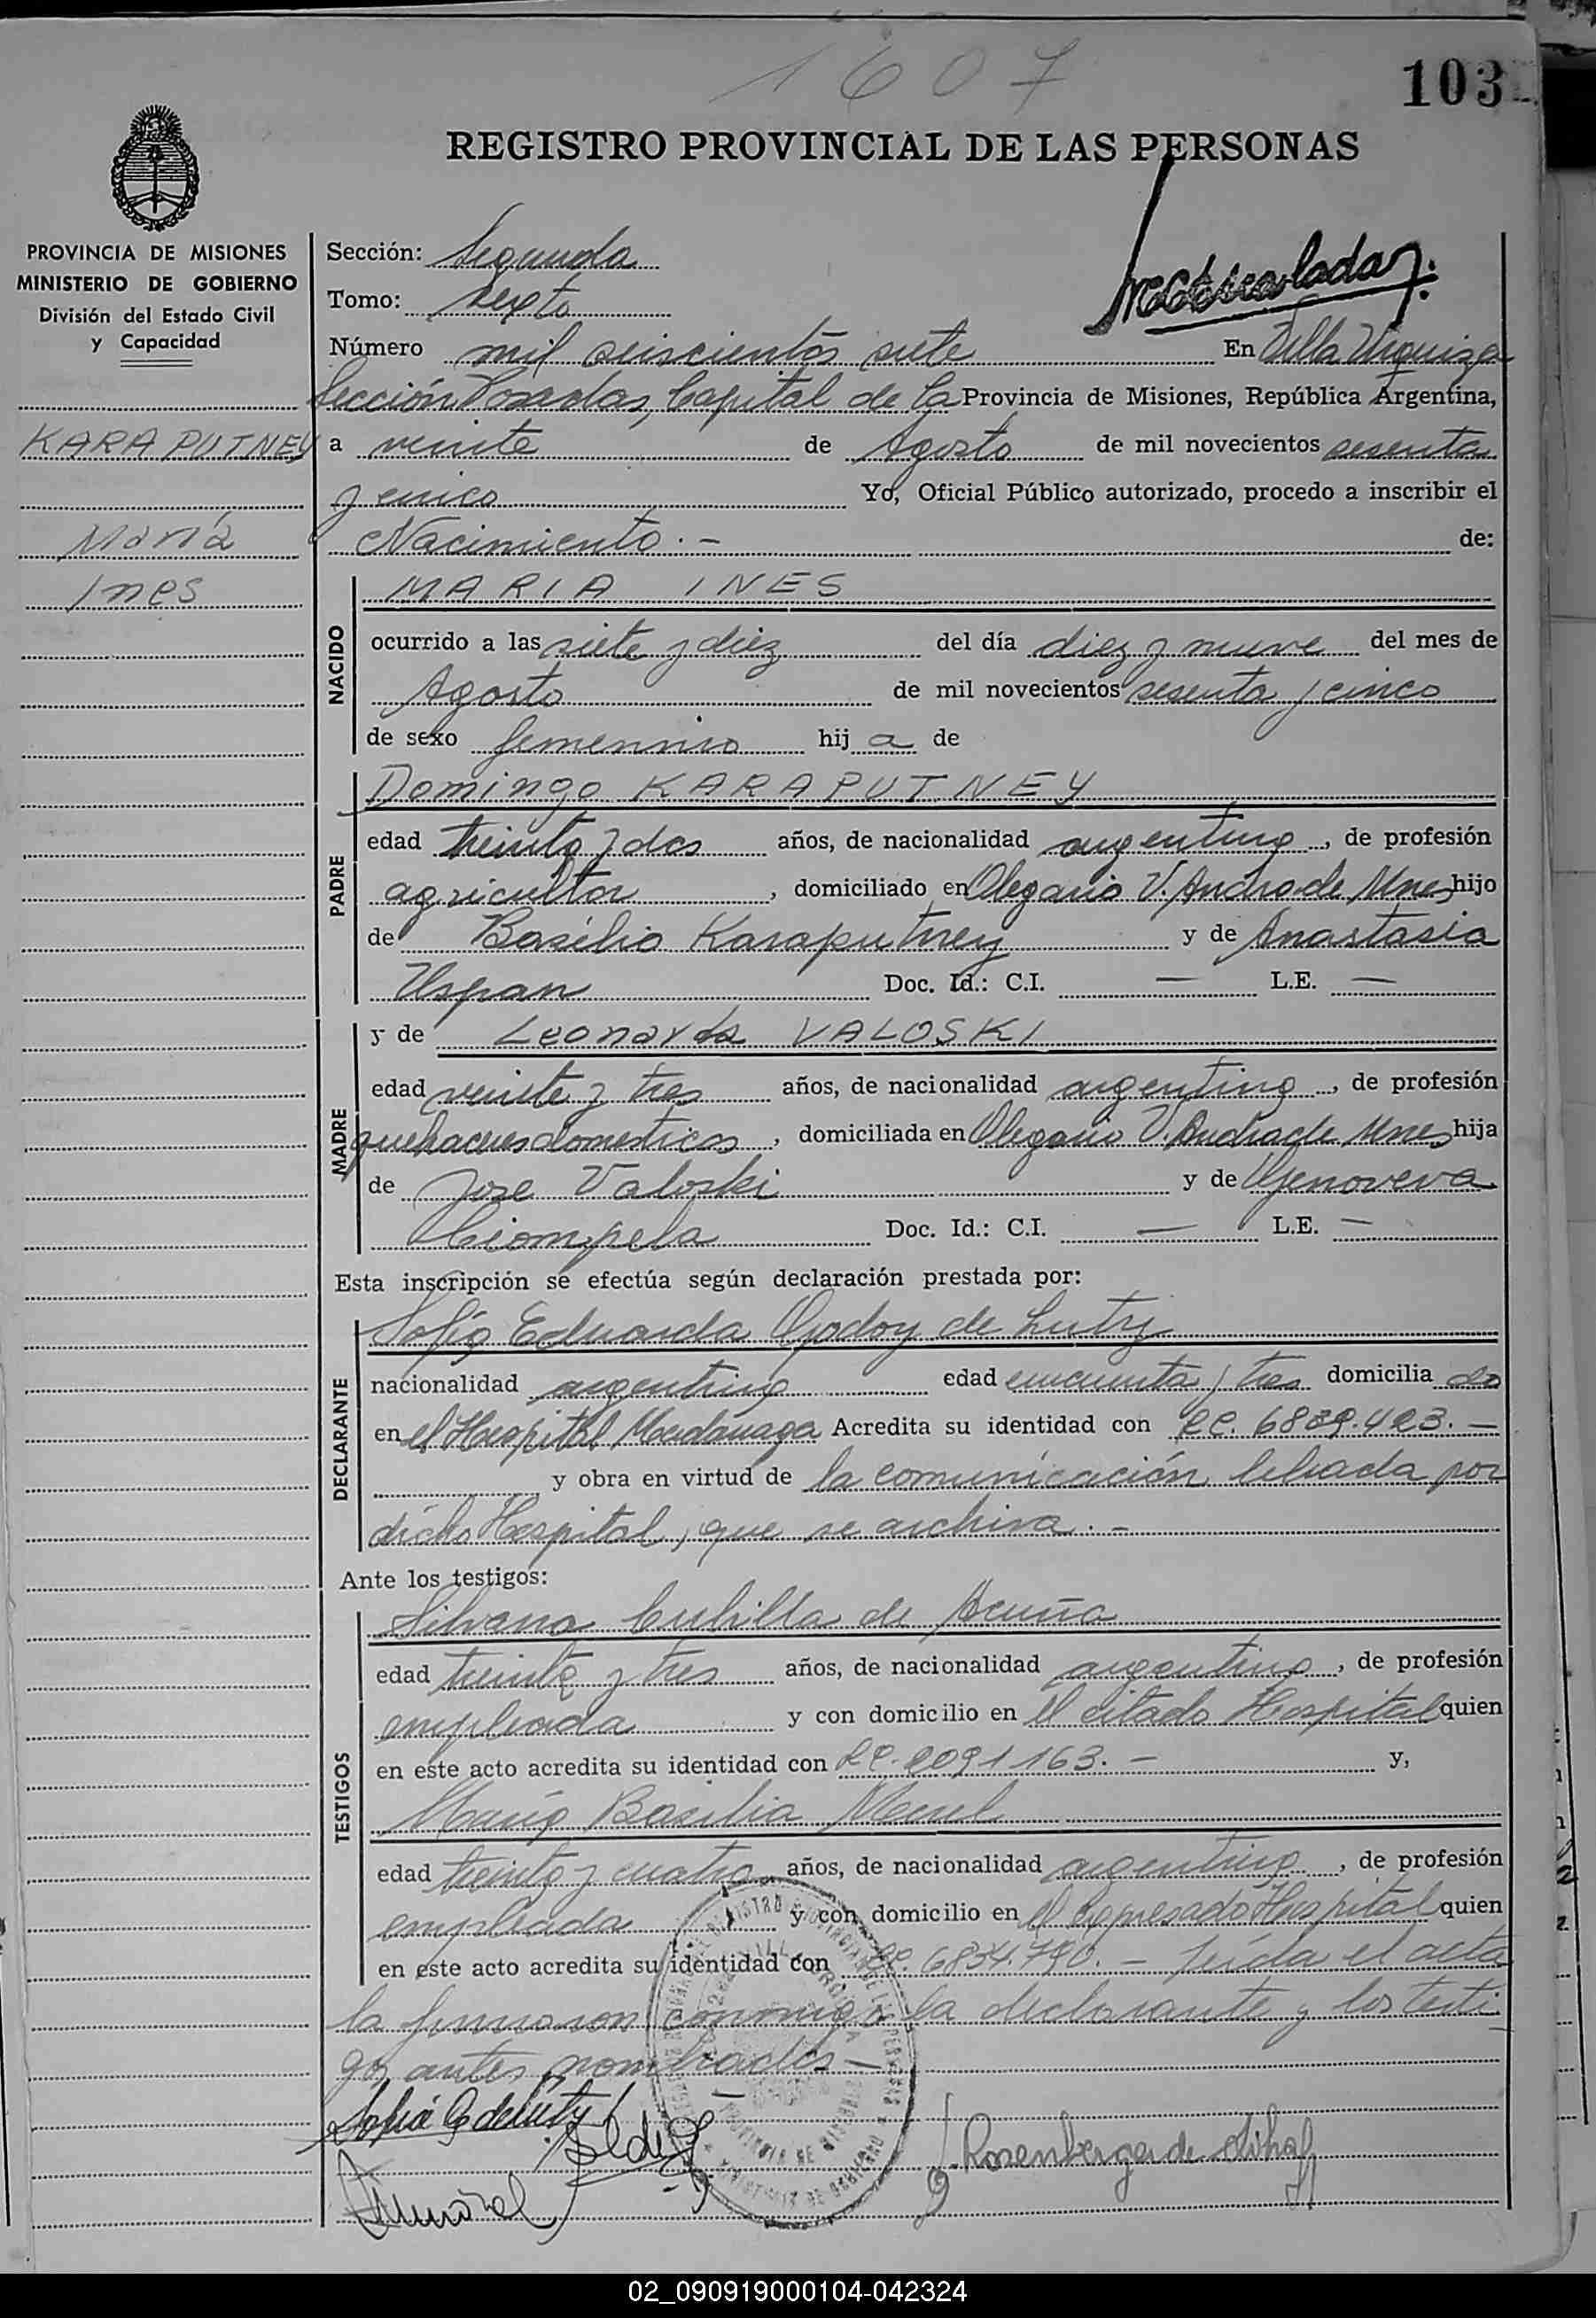 1607
103
REGISTRO PROVINCIAL DE LAS PERSONAS
PROVINCIA DE MISIONES
MINISTERIO DE GOBIERNO
División del Estado Civil
y Capacidad
KARAPUTNEY
María
Ines
Sección: Segunda
Tomo: Sexto
Número mil seiscientos siete En Villa Urquiza
Sección Posadas, Capital de la Provincia de Misiones, República Argentina,
a veinte de Agosto de mil novecientos sesenta
y cinco Yo, Oficial Público autorizado, procedo a inscribir el
Nacimiento.- de:
NACIDO
MARIA INES
ocurrido a las siete y diez del día diez y nueve del mes de
Agosto de mil novecientos sesenta y cinco
de sexo femenino hija de
PADRE
Domingo KARAPUTNEY
edad treinta y dos años, de nacionalidad argentina, de profesión
agricultor, domiciliado en Olegario V. Andrade Mnes hijo
de Basilio Karaputney y de Anastasia
Uspan Doc. Id.: C.I. — L.E. —
MADRE
y de Leonarda VALOSKI
edad veinte y tres años, de nacionalidad argentina, de profesión
quehaceres domesticos, domiciliada en Olegario V. Andrade Mnes hija
de Jose Valoski y de Genoveva
Ciompela Doc. Id.: C.I. — L.E. —
Esta inscripción se efectúa según declaración prestada por:
DECLARANTE
Sofía Eduarda Godoy de Luty
nacionalidad argentina edad cincuenta y tres domicilia da
en el Hospital Madariaga Acredita su identidad con LC. 6839.423.—
y obra en virtud de la comunicación librada por
dicho Hospital, que se archiva.-
Ante los testigos:
TESTIGOS
Silvana Cubilla de Acuña
edad treinta y tres años, de nacionalidad argentina, de profesión
empleada y con domicilio en el citado Hospital quien
en este acto acredita su identidad con LC. 2091163.— y,
María Basilia
edad treinta y cuatro años, de nacionalidad argentina, de profesión
empleada y con domicilio en el expresado Hospital quien
en este acto acredita su identidad con LC. 6834.790.— Leída el acta
la firmaron conmigo la declarante y los testi
gos antes nombrados
Sofia G de Luty
02_090919000104-042324